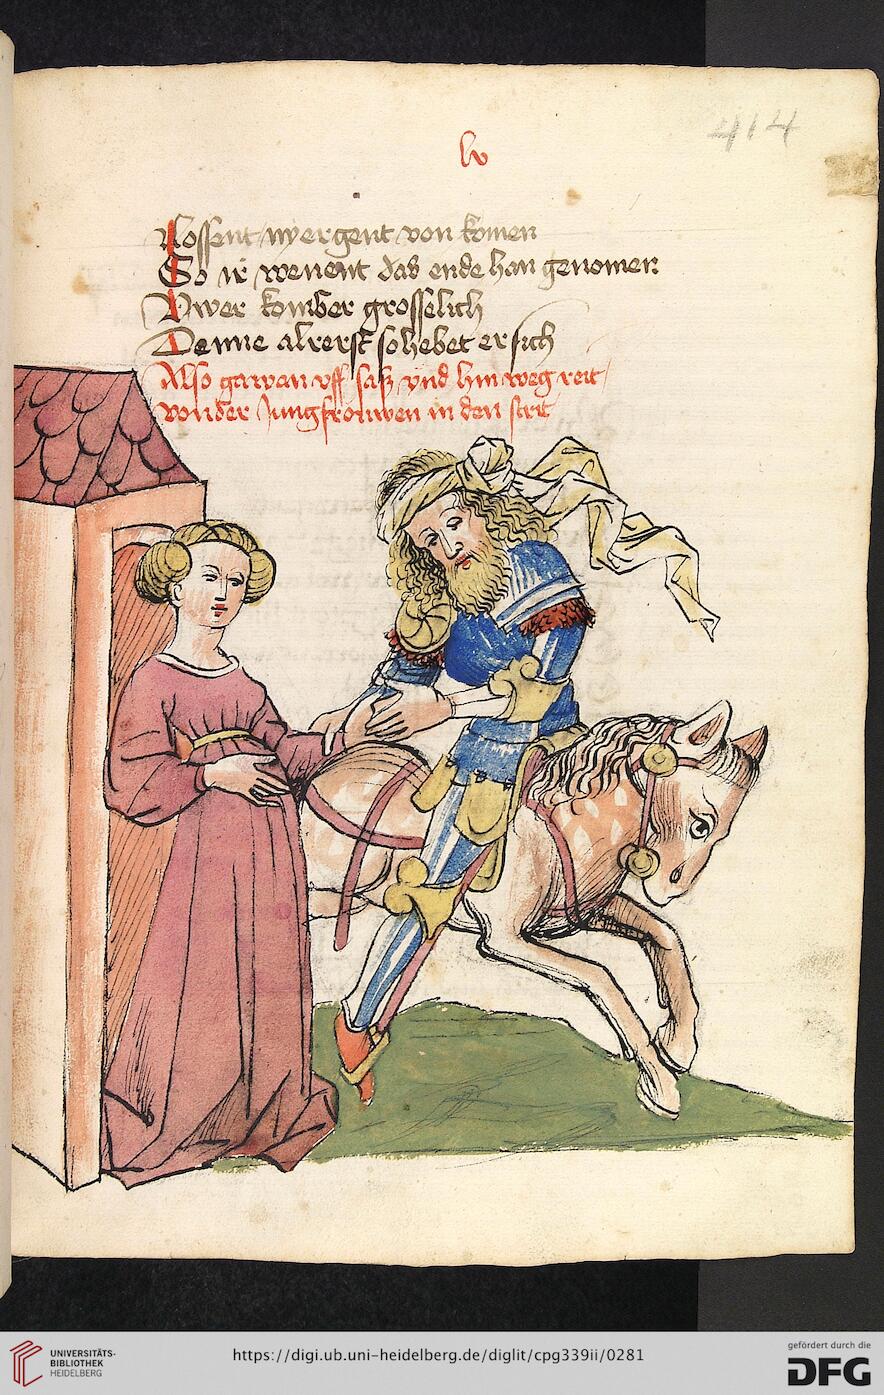 414
lv
Nossent nyergent von komen
So ir wenent das ende han genomen
Vwer komber grosselich
Denne alrerst so hebet er sich
Also gawan vff sasz vnd hin weg reit
von der Jungfrouwen in den strit
UNIVERSITÄTS-
BIBLIOTHEK
HEIDELBERG
https://digi.ub.uni-heidelberg.de/diglit/cpg339ii/0281
gefördert durch die
DFG